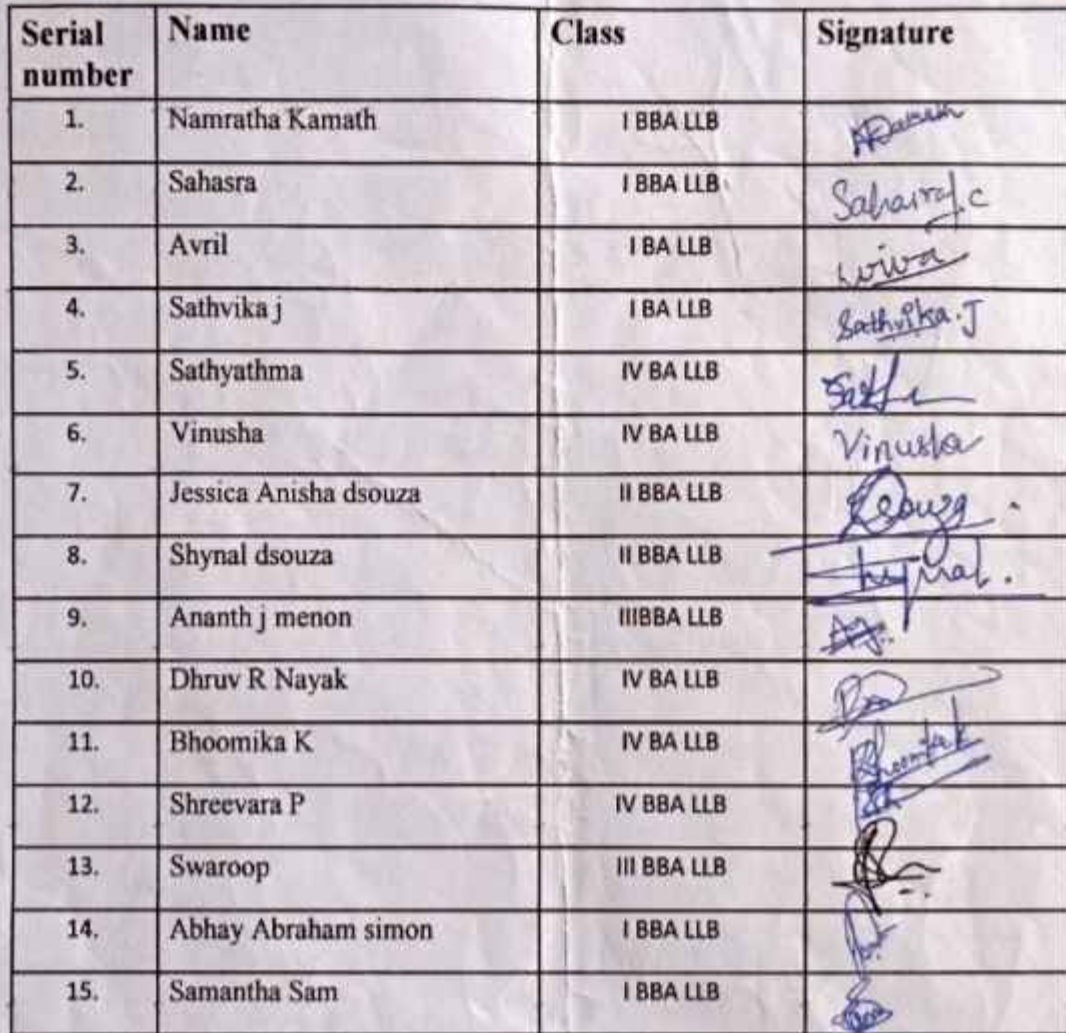 Serial number Name Class Signature
1. Namratha Kamath I BBA LLB
2. Sahasra I BBA LLB
3. Avril I BA LLB
4. Sathvika j I BA LLB Sathvika.J
5. Sathyathma IV BA LLB
6. Vinusha IV BA LLB Vinusha
7. Jessica Anisha dsouza II BBA LLB
8. Shynal dsouza II BBA LLB
9. Ananth j menon IIIBBA LLB
10. Dhruv R Nayak IV BA LLB
11. Bhoomika K IV BA LLB
12. Shreevara P IV BBA LLB
13. Swaroop III BBA LLB
14. Abhay Abraham simon I BBA LLB
15. Samantha Sam I BBA LLB